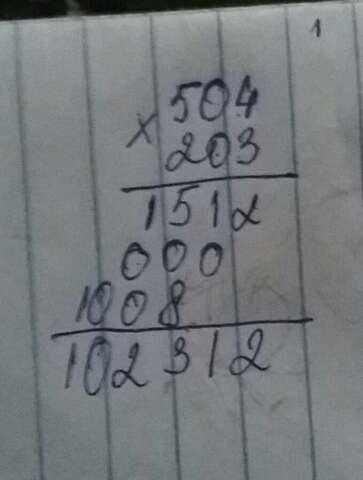 1
504
× 203
1512
000
1008
102312